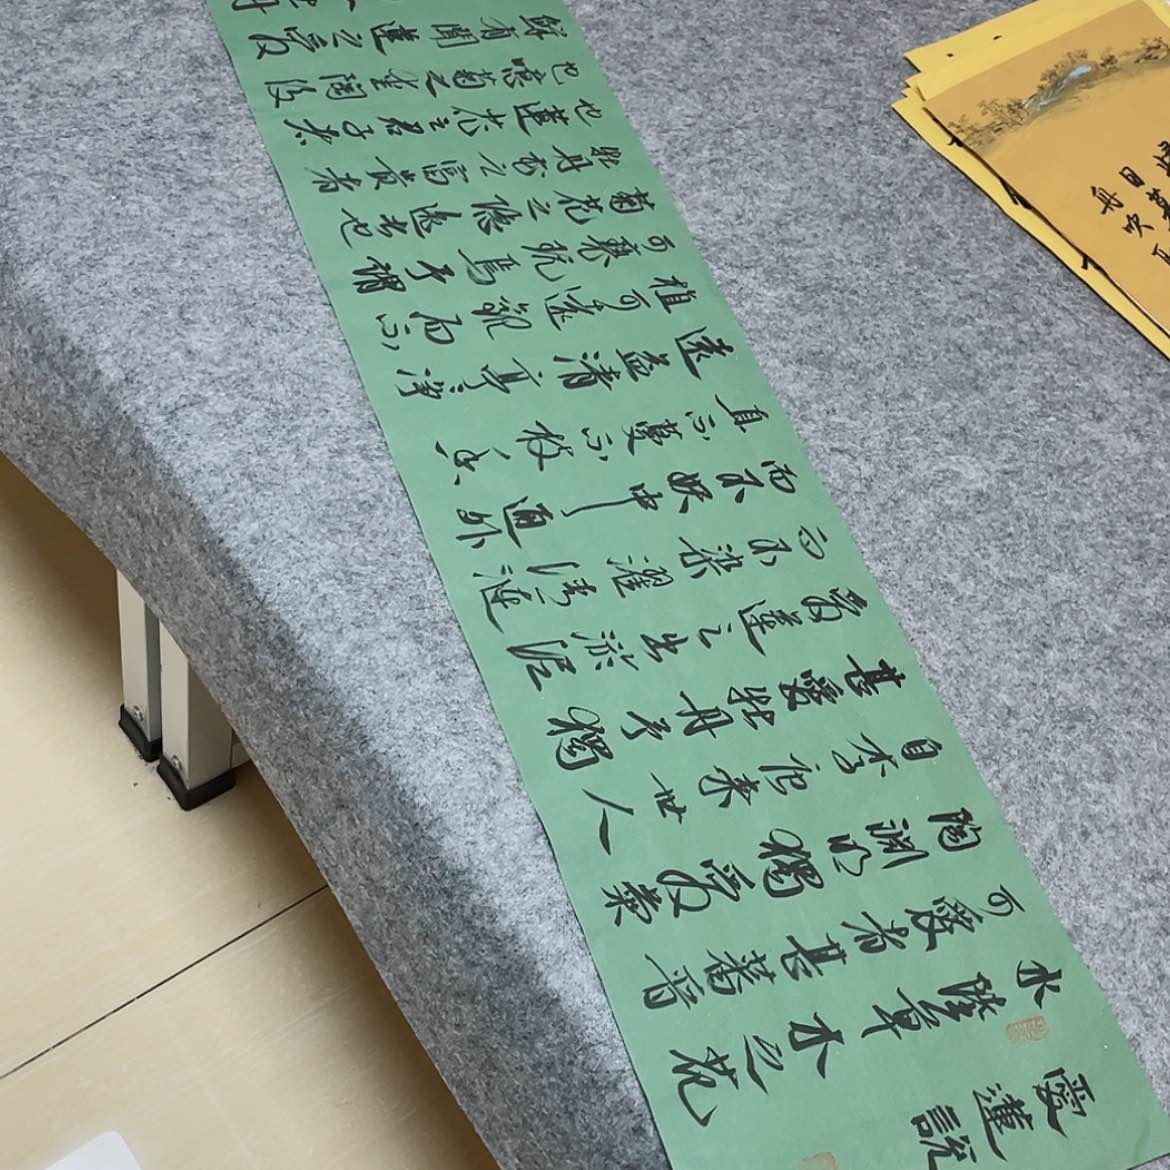 愛蓮說
水陸草木之花
可愛者甚蕃晉
陶淵明獨愛菊
自李唐來世人
甚愛牡丹予獨
愛蓮之出淤泥
而不染濯清漣
而不妖中通外
直不蔓不枝香
遠益清亭〻淨
植可遠觀而不
可褻玩焉予謂
菊花之隱逸者也
牡丹花之富貴者
也蓮花之君子者
也噫菊之愛陶後
鮮有聞蓮之愛